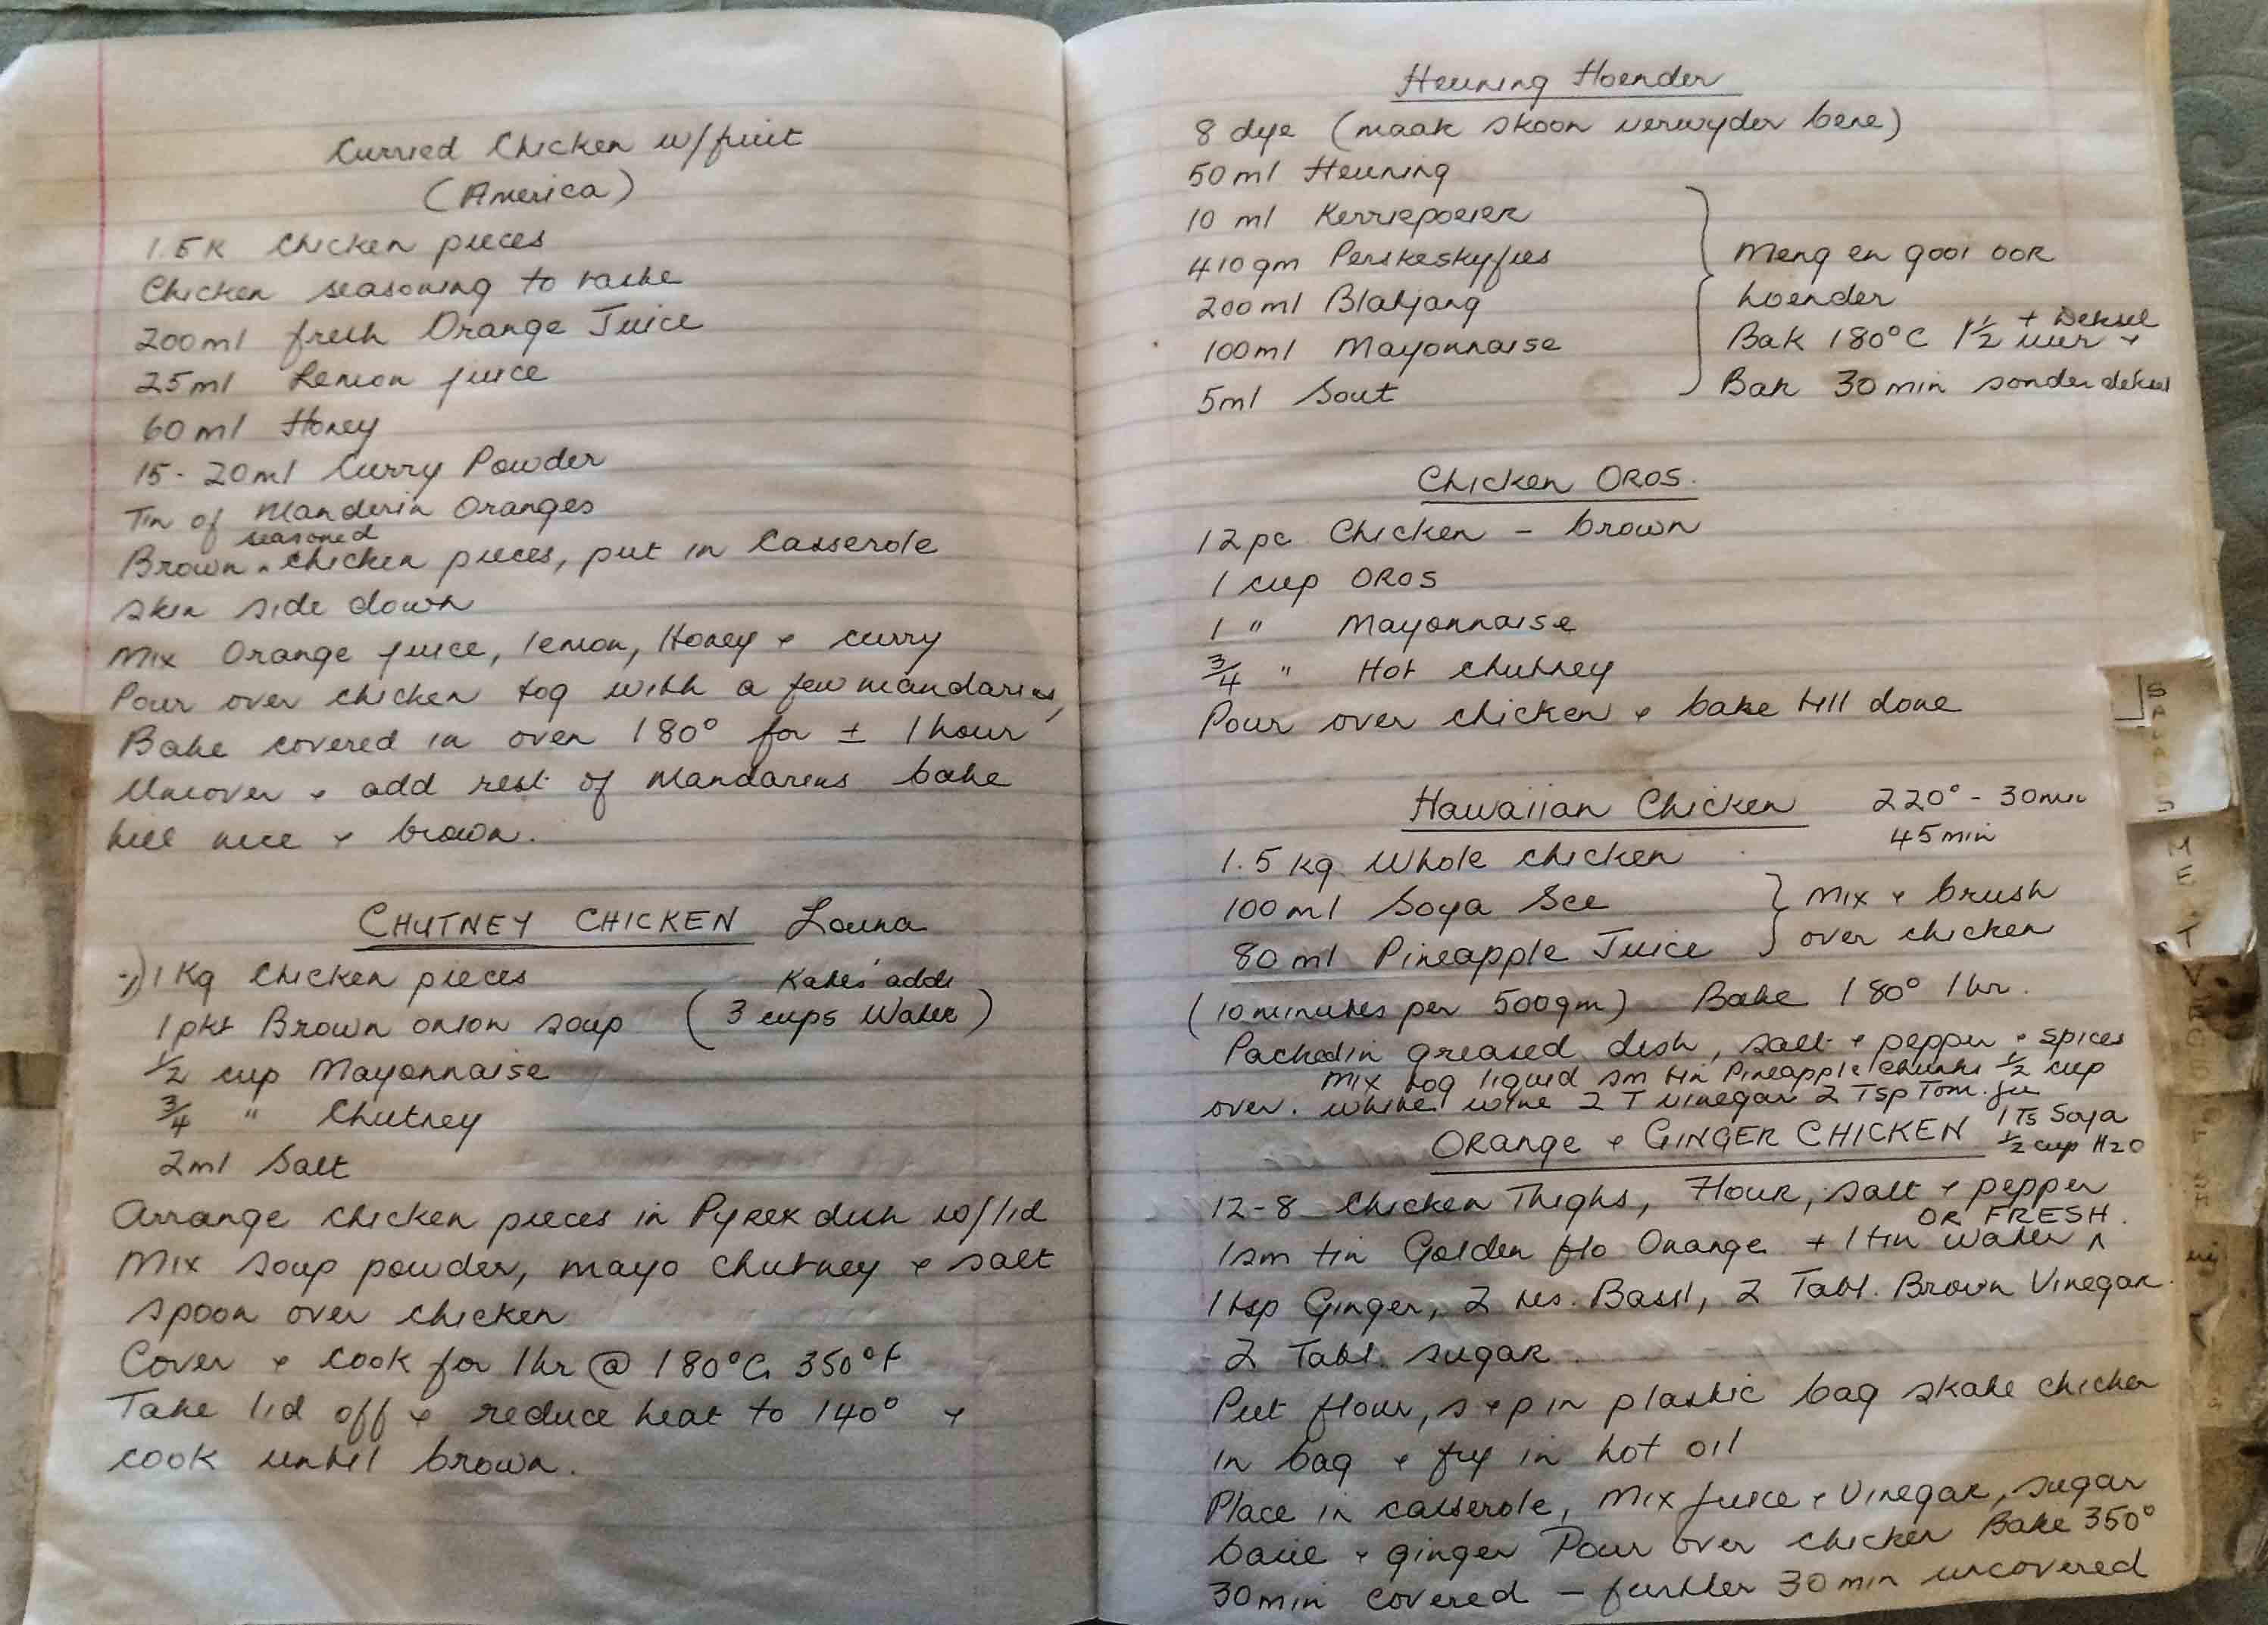 Curried Chicken w/fruit
(America)
1.5K Chicken pieces
Chicken seasoning to taste
200ml fresh Orange Juice
25ml Lemon juice
60ml Honey
15-20ml Curry Powder
Tin of Manderin Oranges
seasoned
Brown ^ chicken pieces, put in Casserole
skin side down
Mix Orange juice, lemon, Honey + curry
Pour over chicken tog with a few mandarins,
Bake covered in oven 180° for ± 1 hour
Uncover + add rest of Mandarins bake
till nice + brown.
CHUTNEY CHICKEN Louna
1 Kg Chicken pieces
Kates' adds
1 pkt Brown onion soup (3 cups Water)
½ cup Mayonnaise
¾ " Chutney
2ml Salt
Arrange chicken pieces in Pyrex dish w/lid
Mix soup powder, mayo chutney + salt
spoon over chicken
Cover + cook for 1hr @ 180°C 350°F
Take lid off + reduce heat to 140° +
cook until brown.
Heuning Hoender
8 dye (maak skoon verwyder bene)
50ml Heuning
10 ml Kerriepoeier
410gm Perskeskyfies
200ml Blatjang
100ml Mayonnaise
5ml Sout
Meng en gooi oor
hoender
+ Deksel
Bak 180°C 1½ uur +
Bak 30min sonder deksel
Chicken OROS.
12pc Chicken - brown
1 cup OROS
1 " Mayonnaise
¾ " Hot chutney
Pour over chicken + bake till done
Hawaiian Chicken 220° - 30min
45min
1.5 kg Whole chicken
100ml Soya Sce
80 ml Pineapple Juice
Mix + brush
over chicken
(10 minutes per 500gm) Bake 180° 1hr.
Packed in greased dish, salt + pepper + spices
mix tog liquid sm tin Pineapple chunks ½ cup
over. white wine 2 T vinegar 2 Tsp Tom. Ju
1 Ts Soya
½ cup H2O
ORange + GINGER CHICKEN
12-8 Chicken Thighs, Flour, salt + pepper
OR FRESH.
1 sm tin Golden flo Orange + 1 tin water ^
1 tsp Ginger, 2 tes. Basil, 2 Tabl. Brown Vinegar.
2 Tabl. sugar
Put flour, s + p in plastic bag skake chicken
in bag + fry in hot oil
Place in casserole, Mix juice + Vinegar, sugar
basil + ginger Pour over chicken Bake 350°
30min covered - further 30min uncovered
SALADS
MEAT